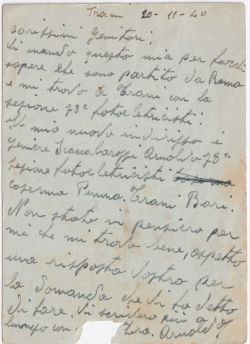 Trani 20-11-40
carissimi Genitori.
Vi mando questo mia per farvi
sapere che sono partito da Roma
e mi trovo a Trani con la
sezione 78ª fotoelettricisti
il mio nuovo indirizzo è
Geniere Arnaldo 78ª
Sezione fotoelettricisti
caserma Trani Bari.
Non stati in pensiero per
me che mi trovo bene, aspetto
una risposta vostro per
la domanda che vi ho detto
di fare. Vi scriverò più a
lungo con. Arnaldo